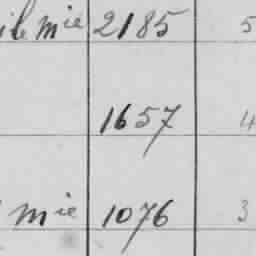 mie 2185 5
1657 4
mie 1076 3